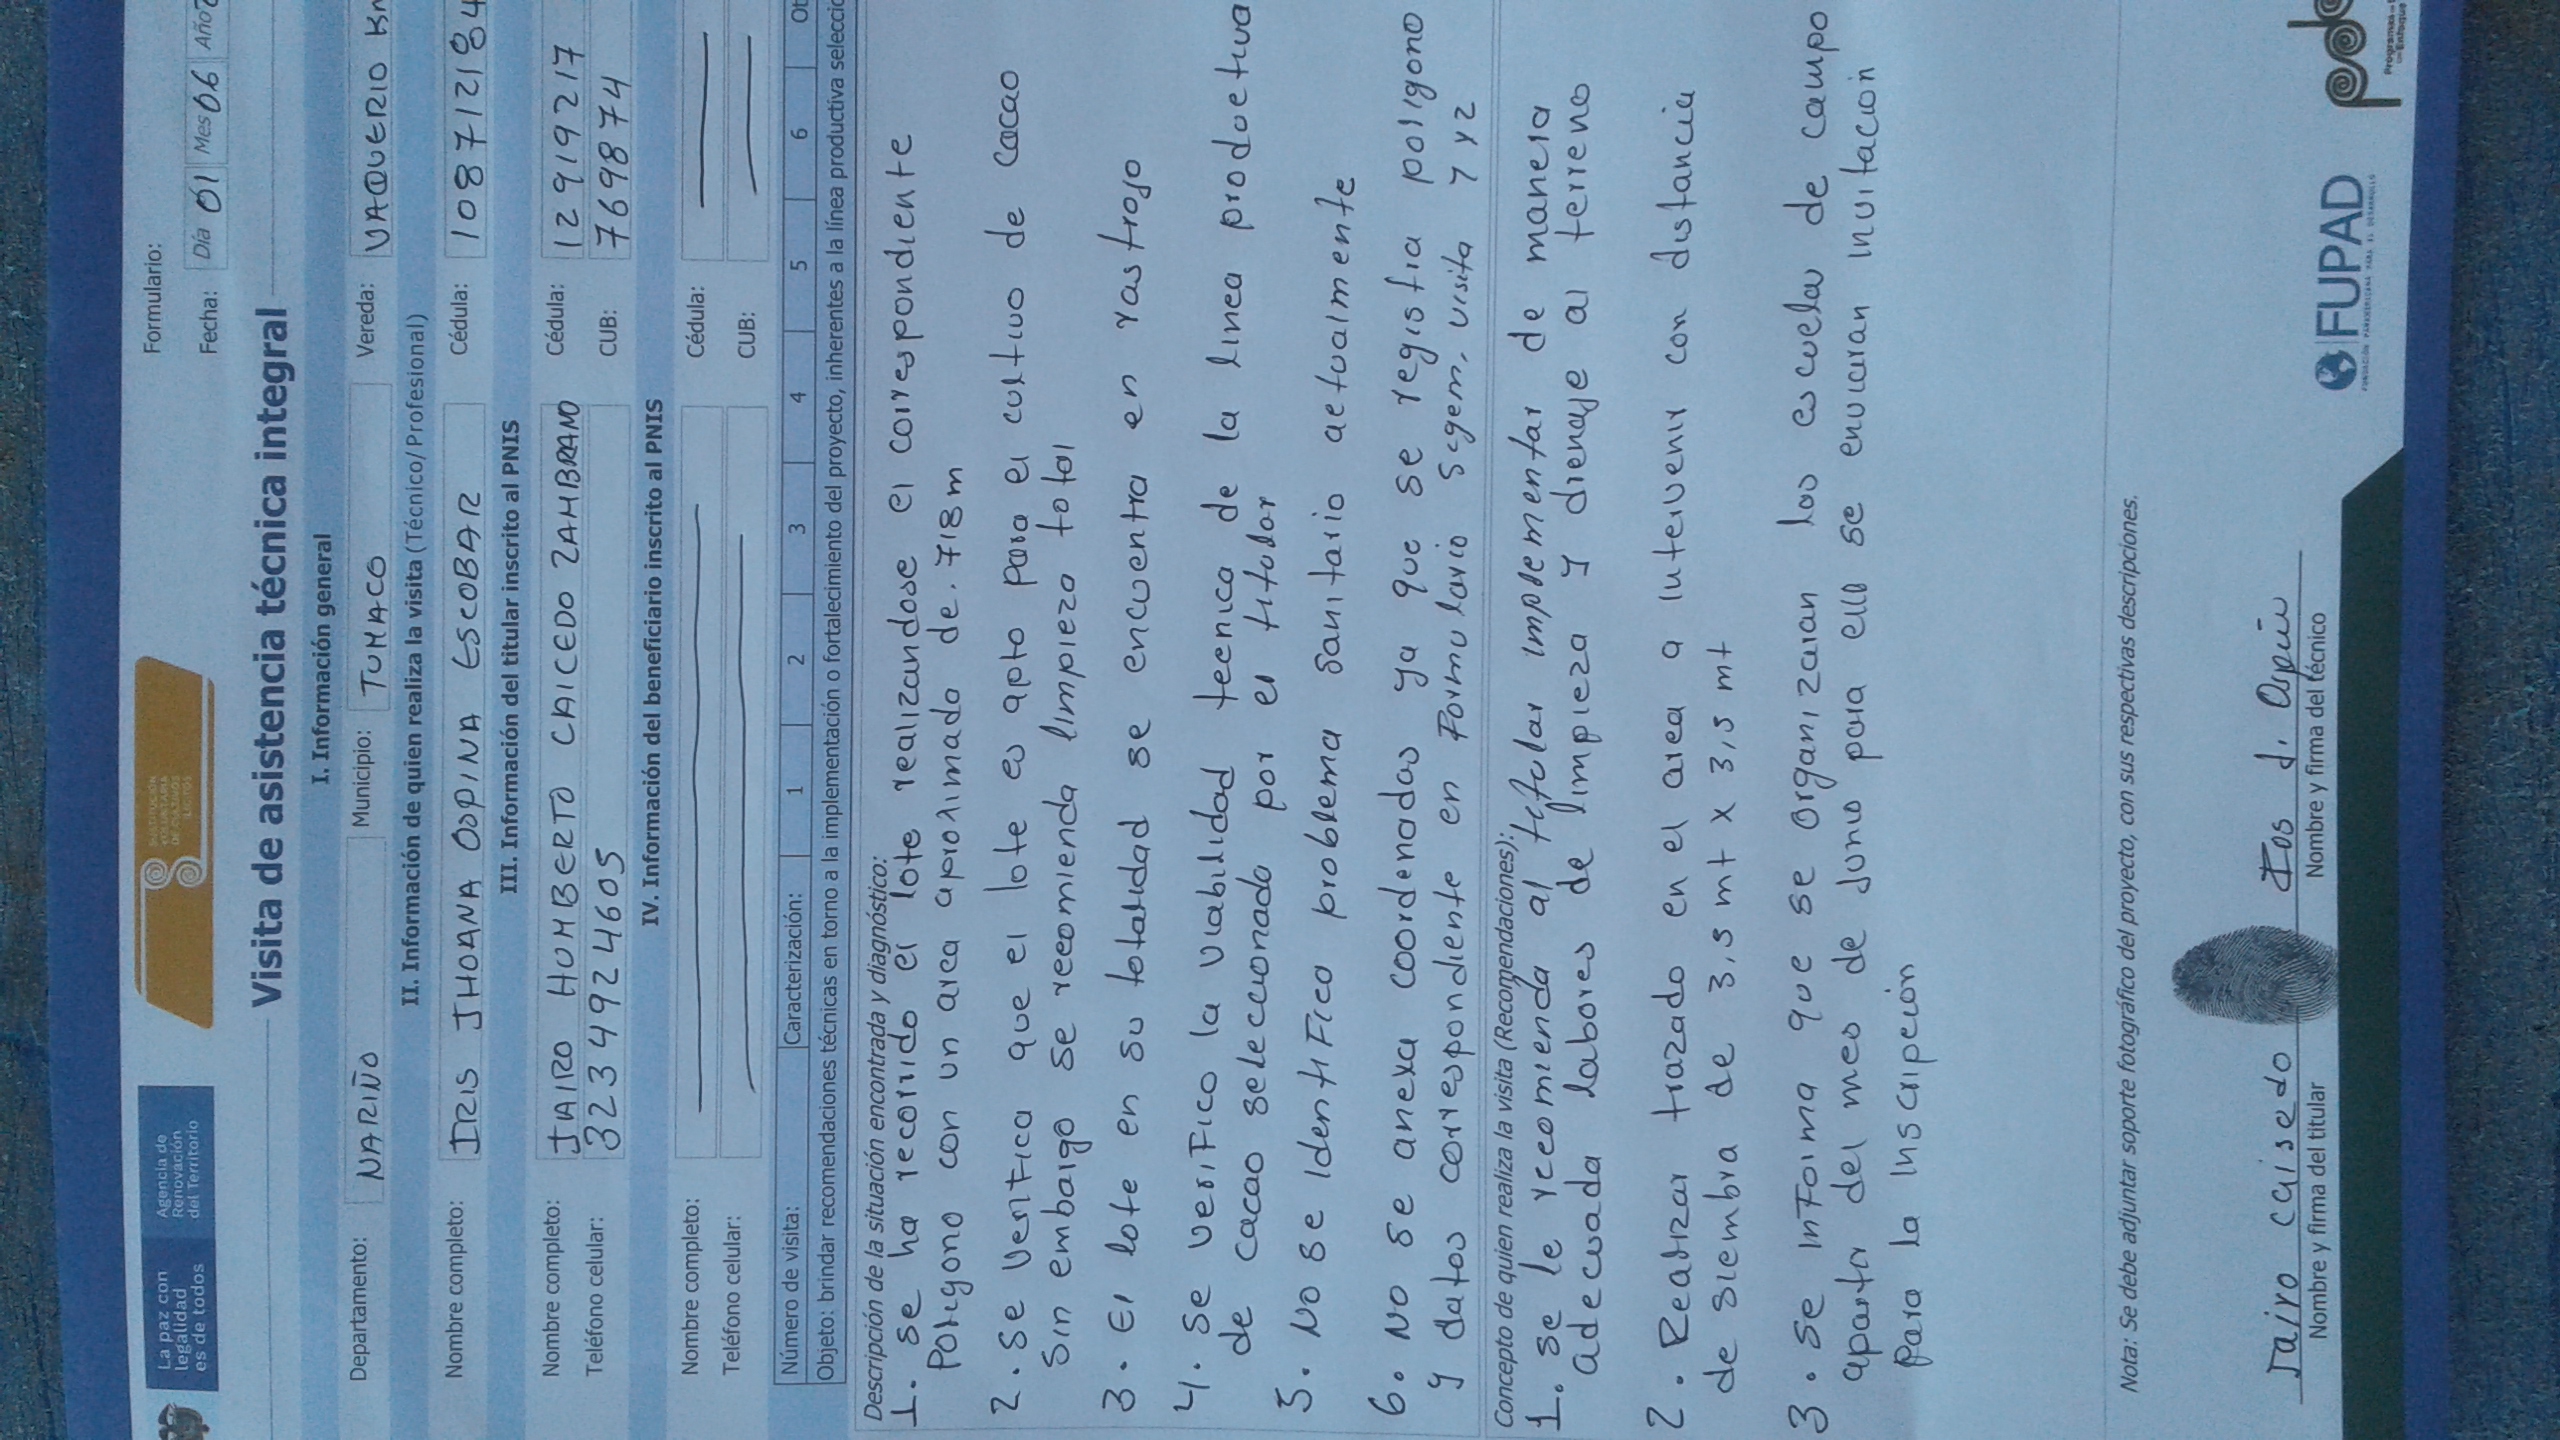 La paz con
legalidad
es de todos
Agencia de
Renovación
del Territorio
SUSTITUCIÓN
VOLUNTARIA
DE CULTIVOS
ILÍCITOS
Formulario:
Fecha: Día 01 Mes 06 Año
Visita de asistencia técnica integral
I. Información general
Departamento: NARIÑO Municipio: TUMACO Vereda: VAQUERIO Km
II. Información de quien realiza la visita (Técnico/ Profesional)
Nombre completo: IRIS JHOANA OSPINA ESCOBAR Cédula: 108712184
III. Información del titular inscrito al PNIS
Nombre completo: JAIRO HUMBERTO CAICEDO ZAMBRANO Cédula: 12919217
Teléfono celular: 3234924605 CUB: 7698874
IV. Información del beneficiario inscrito al PNIS
Nombre completo: Cédula:
Teléfono celular: CUB:
Número de visita: Caracterización: 1 2 3 4 5 6 Ot
Objeto: brindar recomendaciones técnicas en torno a la implementación o fortalecimiento del proyecto, inherentes a la línea productiva seleccio
Descripción de la situación encontrada y diagnóstico:
1. se ha recorrido el lote realizandose el correspondiente
Poligono con un area aproximado de. 718m
2. se verifica que el lote es apto para el cultivo de cacao
sin embargo se recomienda limpieza total
3. El lote en su totalidad se encuentra en rastrojo
4. se verifico la viabilidad tecnica de la linea productiva
de cacao seleccionado por el titular
5. No se identifico problema sanitario actualmente
6. No se anexa coordenadas ya que se registra poligono
y datos correspondiente en Formulario sigem, visita 7 y 2
Concepto de quien realiza la visita (Recomendaciones):
1. se le recomienda al titular implementar de manera
adecuada labores de limpieza y drenaje al terreno
2. Realizar trazado en el area a intervenir con distancia
de siembra de 3,5 mt x 3,5 mt
3. se informa que se organizaran las escuelas de campo
apartir del mes de Junio para ello se enviaran invitacion
Para la inscripcion
Nota: Se debe adjuntar soporte fotográfico del proyecto, con sus respectivas descripciones.
Jairo caisedo
Nombre y firma del titular
Nombre y firma del técnico
FUPAD
FUNDACIÓN PANAMERICANA PARA EL DESARROLLO